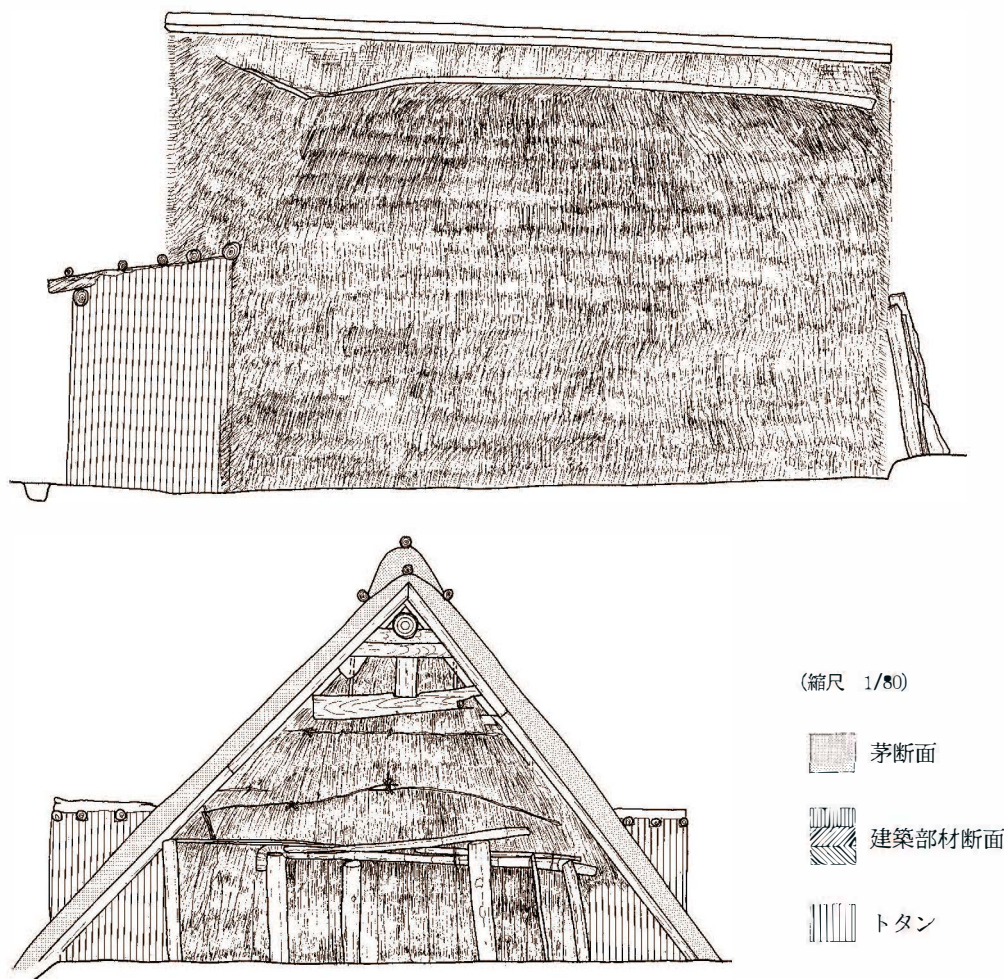 (縮尺 1/80)
茅断面
建築部材断面
トタン